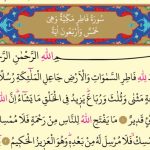 سُورَةُ فَاطِرٍ مَكِّيَّةٌ وَهِيَ
خَمْسٌ وَأَرْبَعُونَ آيَةً
ـمِ اللّٰهِ الرَّحْمٰنِ الرَّحـ
لِلّٰهِ فَاطِرِ السَّمٰوَاتِ وَالْاَرْضِ جَاعِلِ الْمَلٰٓئِكَةِ رُسُلًا
مَثْنٰى وَثُلٰثَ وَرُبَاعَ يَزِيدُ فِي الْخَلْقِ مَا يَشَٓاءُ اِنَّ اللّٰهَ
قَدِيرٌ مَا يَفْتَحِ اللّٰهُ لِلنَّاسِ مِنْ رَحْمَةٍ فَلَا مُمْسِكَ
مْسِكْ فَلَا مُرْسِلَ لَهُ مِنْ بَعْدِهِ وَهُوَ الْعَزِيزُ الْحَكِيمُ